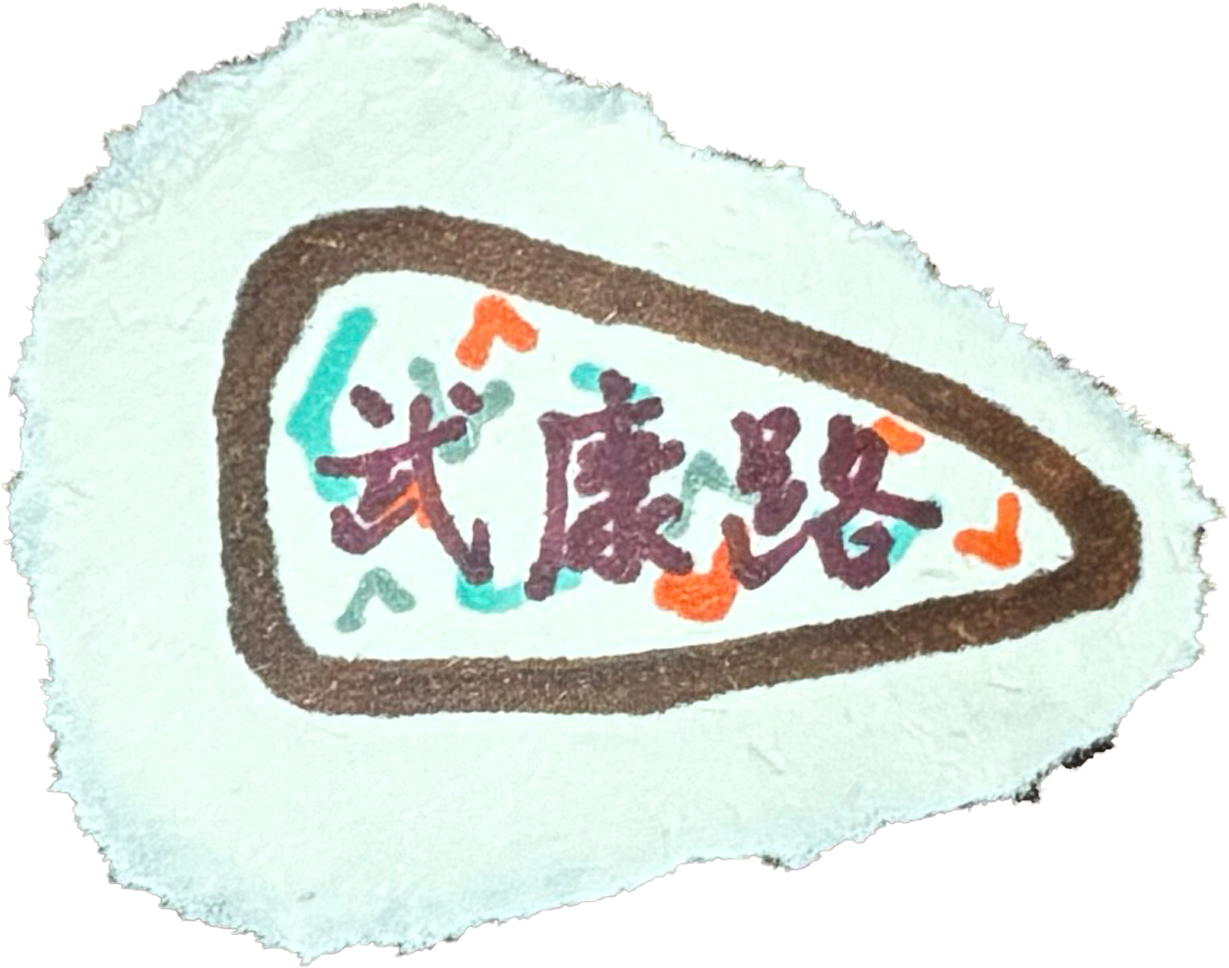 武康路